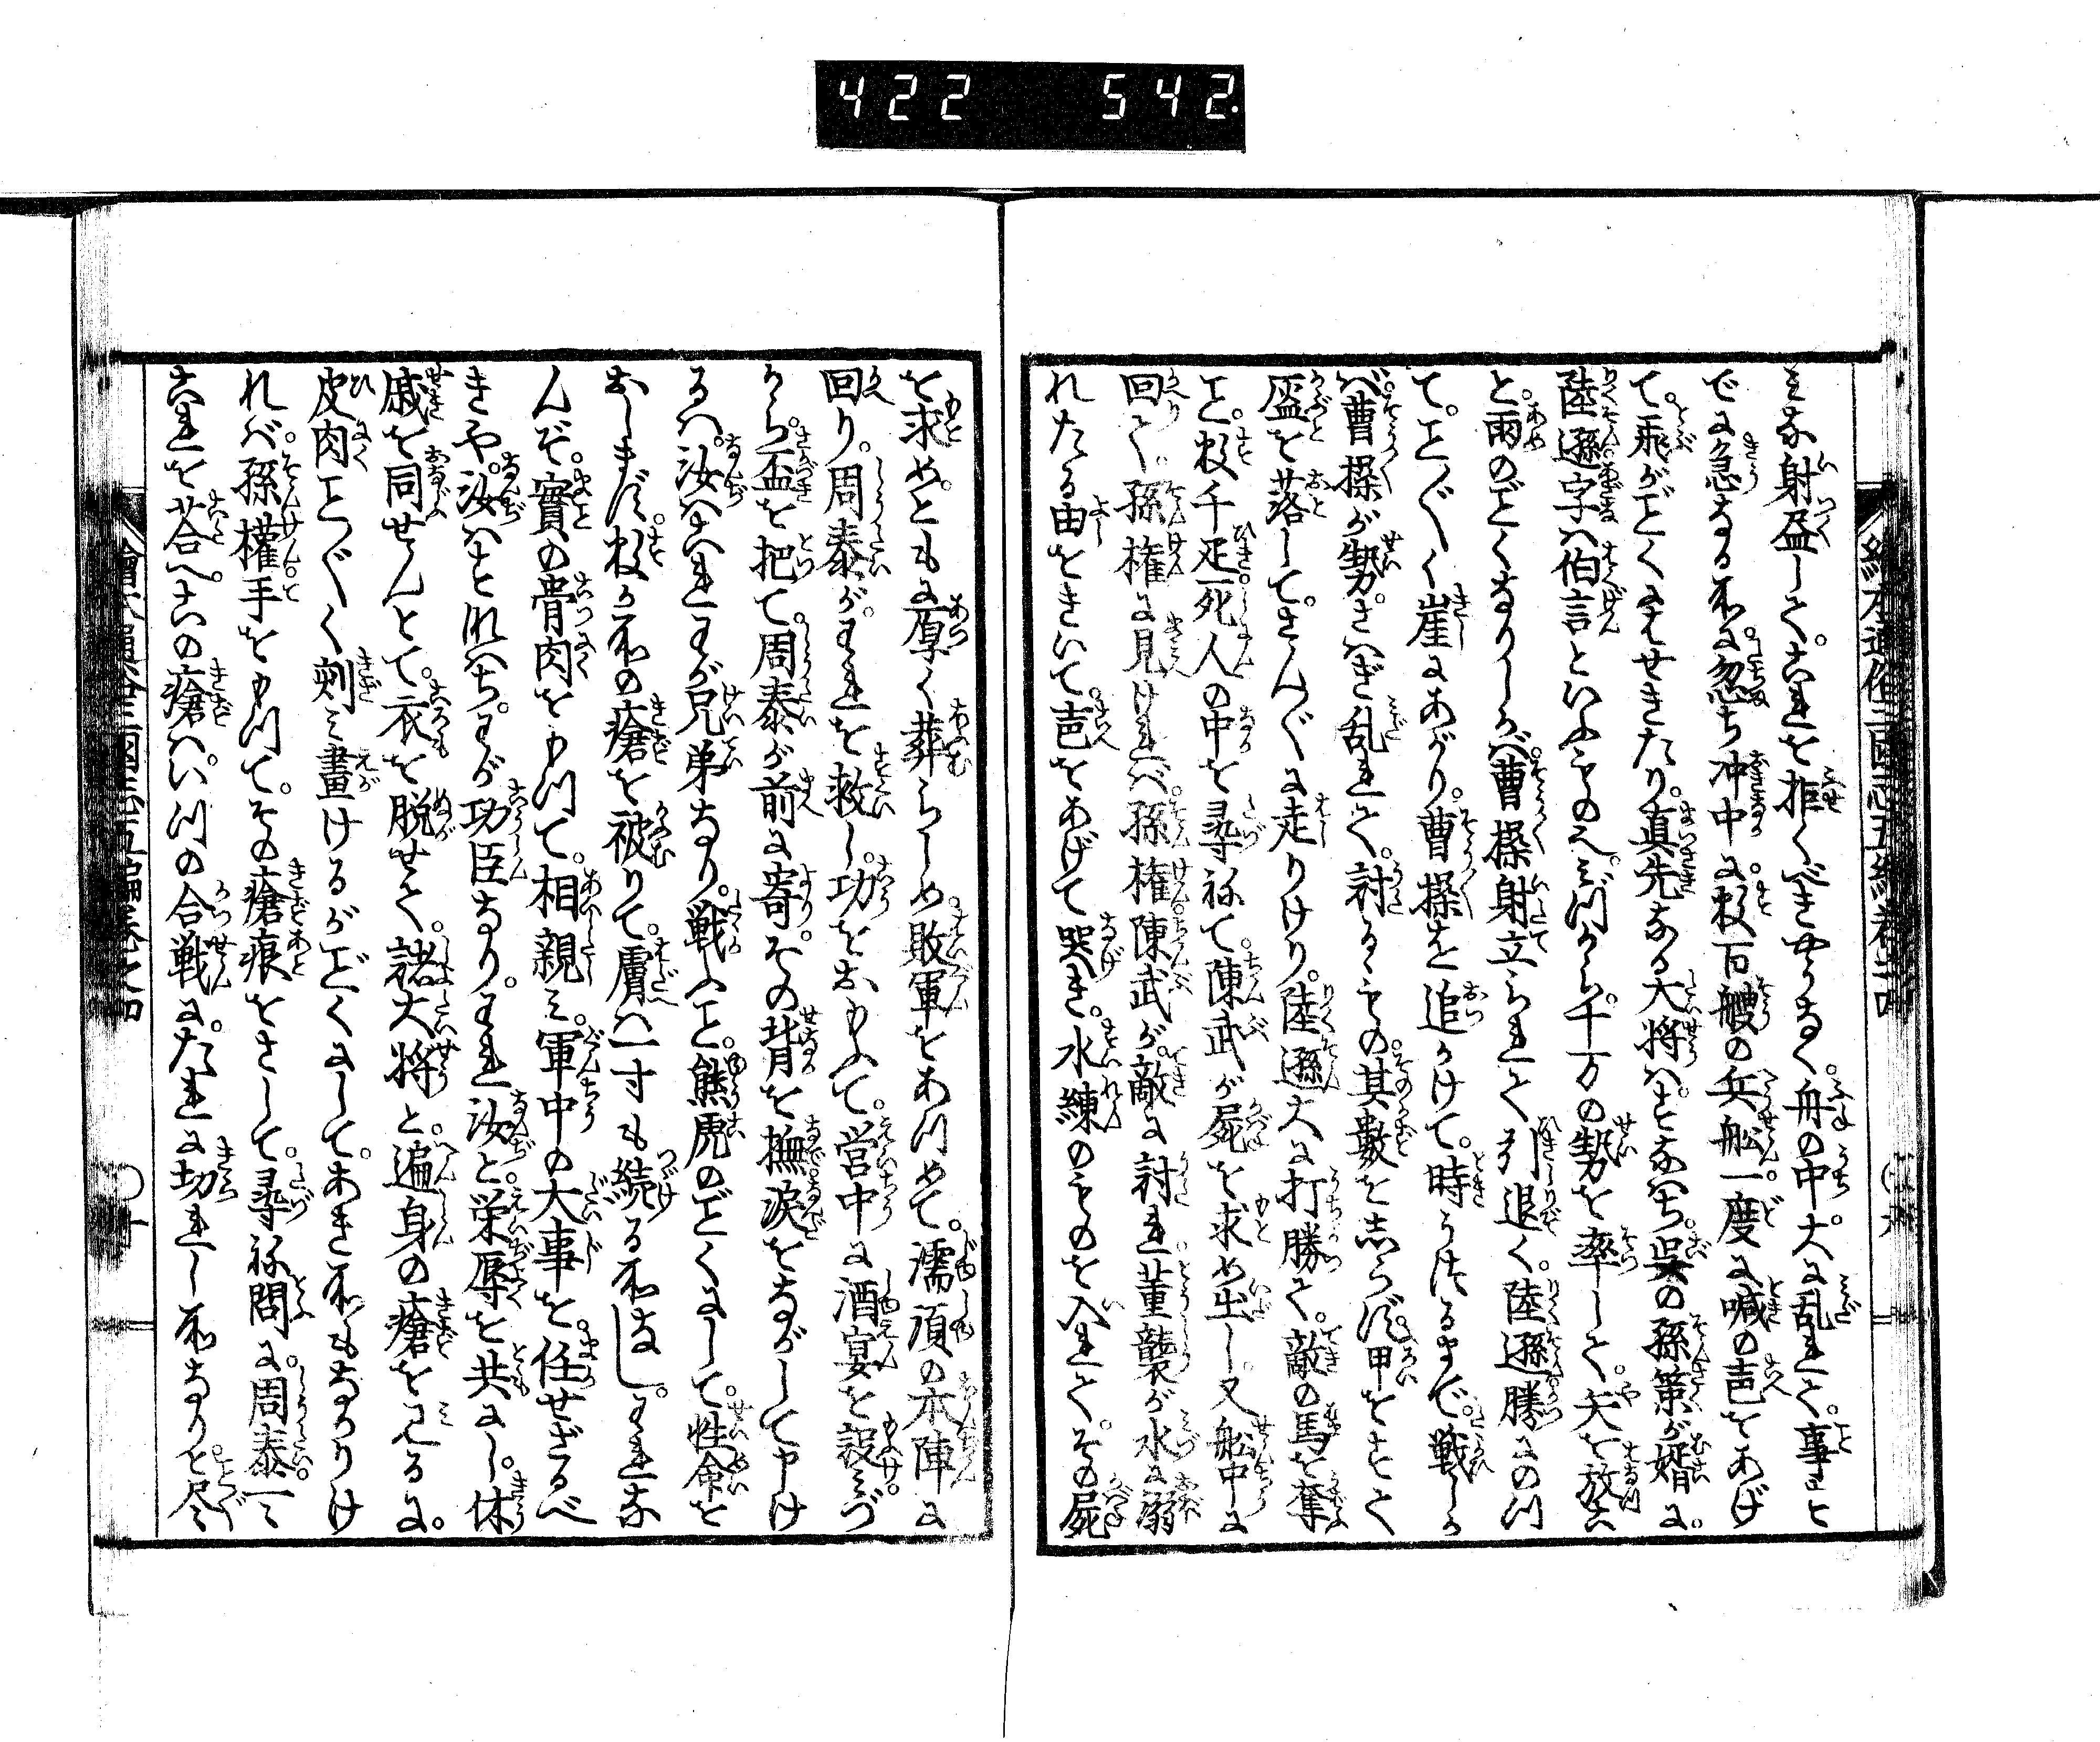 422 542.
絵本通俗三国志五編巻之四
ミな射盡しく。これを拒くべきやうなく。舟の中。大に乱れて。事すと
でに急なる所に。忽ち冲中に。数百艘の兵舩一度に喊の声をあげ
て。飛がごとくにはせきたり。真先なる大将はすなはち。呉の孫策が婿に。
陸遜字ハ伯言といふものミづから。千万の勢を率して。矢を放こ
と。雨のごとくなりしかバ。曹操射立られて引退く。陸遜勝にのつ
て。こと〲く崖にあがり。曹操を追かけて。時うつるまで。戦しか
バ。曹操が勢。さハぎ乱れて。討るゝもの。其数をしらず。甲をすて
盔を落して。さん〲に走りけり。陸遜大に打勝て。敵の馬を奪こ
と。数千疋。死人の中を尋ねて。陳武が屍を求め出し。又舩中に
回て。孫権に見けれバ。孫権。陳武が。敵に討れ。董襲が水に溺
れたる由をきいて。声をあげて哭き。水練のものを入れて。その屍
を求め。ともに厚く葬らしめ。敗軍をあつめて。濡須の本陣に
回り。周泰が。われを救し。功をおもふて。営中に酒宴を設ミづ
から。盃を把て。周泰が前に寄。その背を撫。涙をながして申け
るハ。汝ハこれわが兄弟なり。戦ふこと。熊虎のごとくにして。性命を
おしまず。数か所の瘡を被りて。膚ハ一寸も続る所なし。われな
んぞ。實の骨肉をもつて。相親ミ。軍中の大事を。任せざるべ
きや。汝ハすなハち。わが功臣なり。われ汝と。栄辱を共にし。休
戚を同せんとて。衣を脱せて。諸大将と。遍身の瘡を見るに。
皮肉こと〲く剜ミ畫けるがごとくにして。あき所もなかりけ
れバ。孫權手をもつて。その瘡痕をさして。尋ね問に。周泰一〻
これを荅へ。この瘡ハ。いつの合戦に。たれに切れし所なりと。尽
繪本通俗三國志五編巻之四